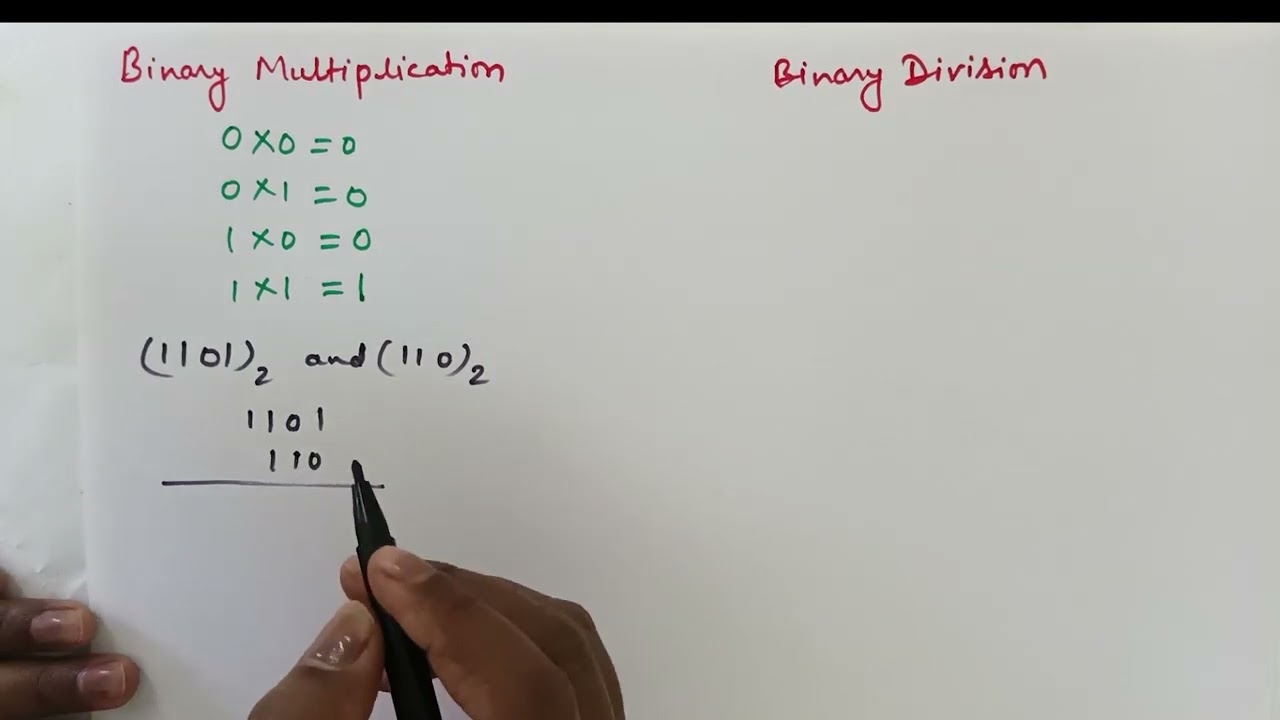 Binary Multiplication
0 × 0 = 0
0 × 1 = 0
1 × 0 = 0
1 × 1 = 1
(1101)₂ and (110)₂
1101
110
Binary Division